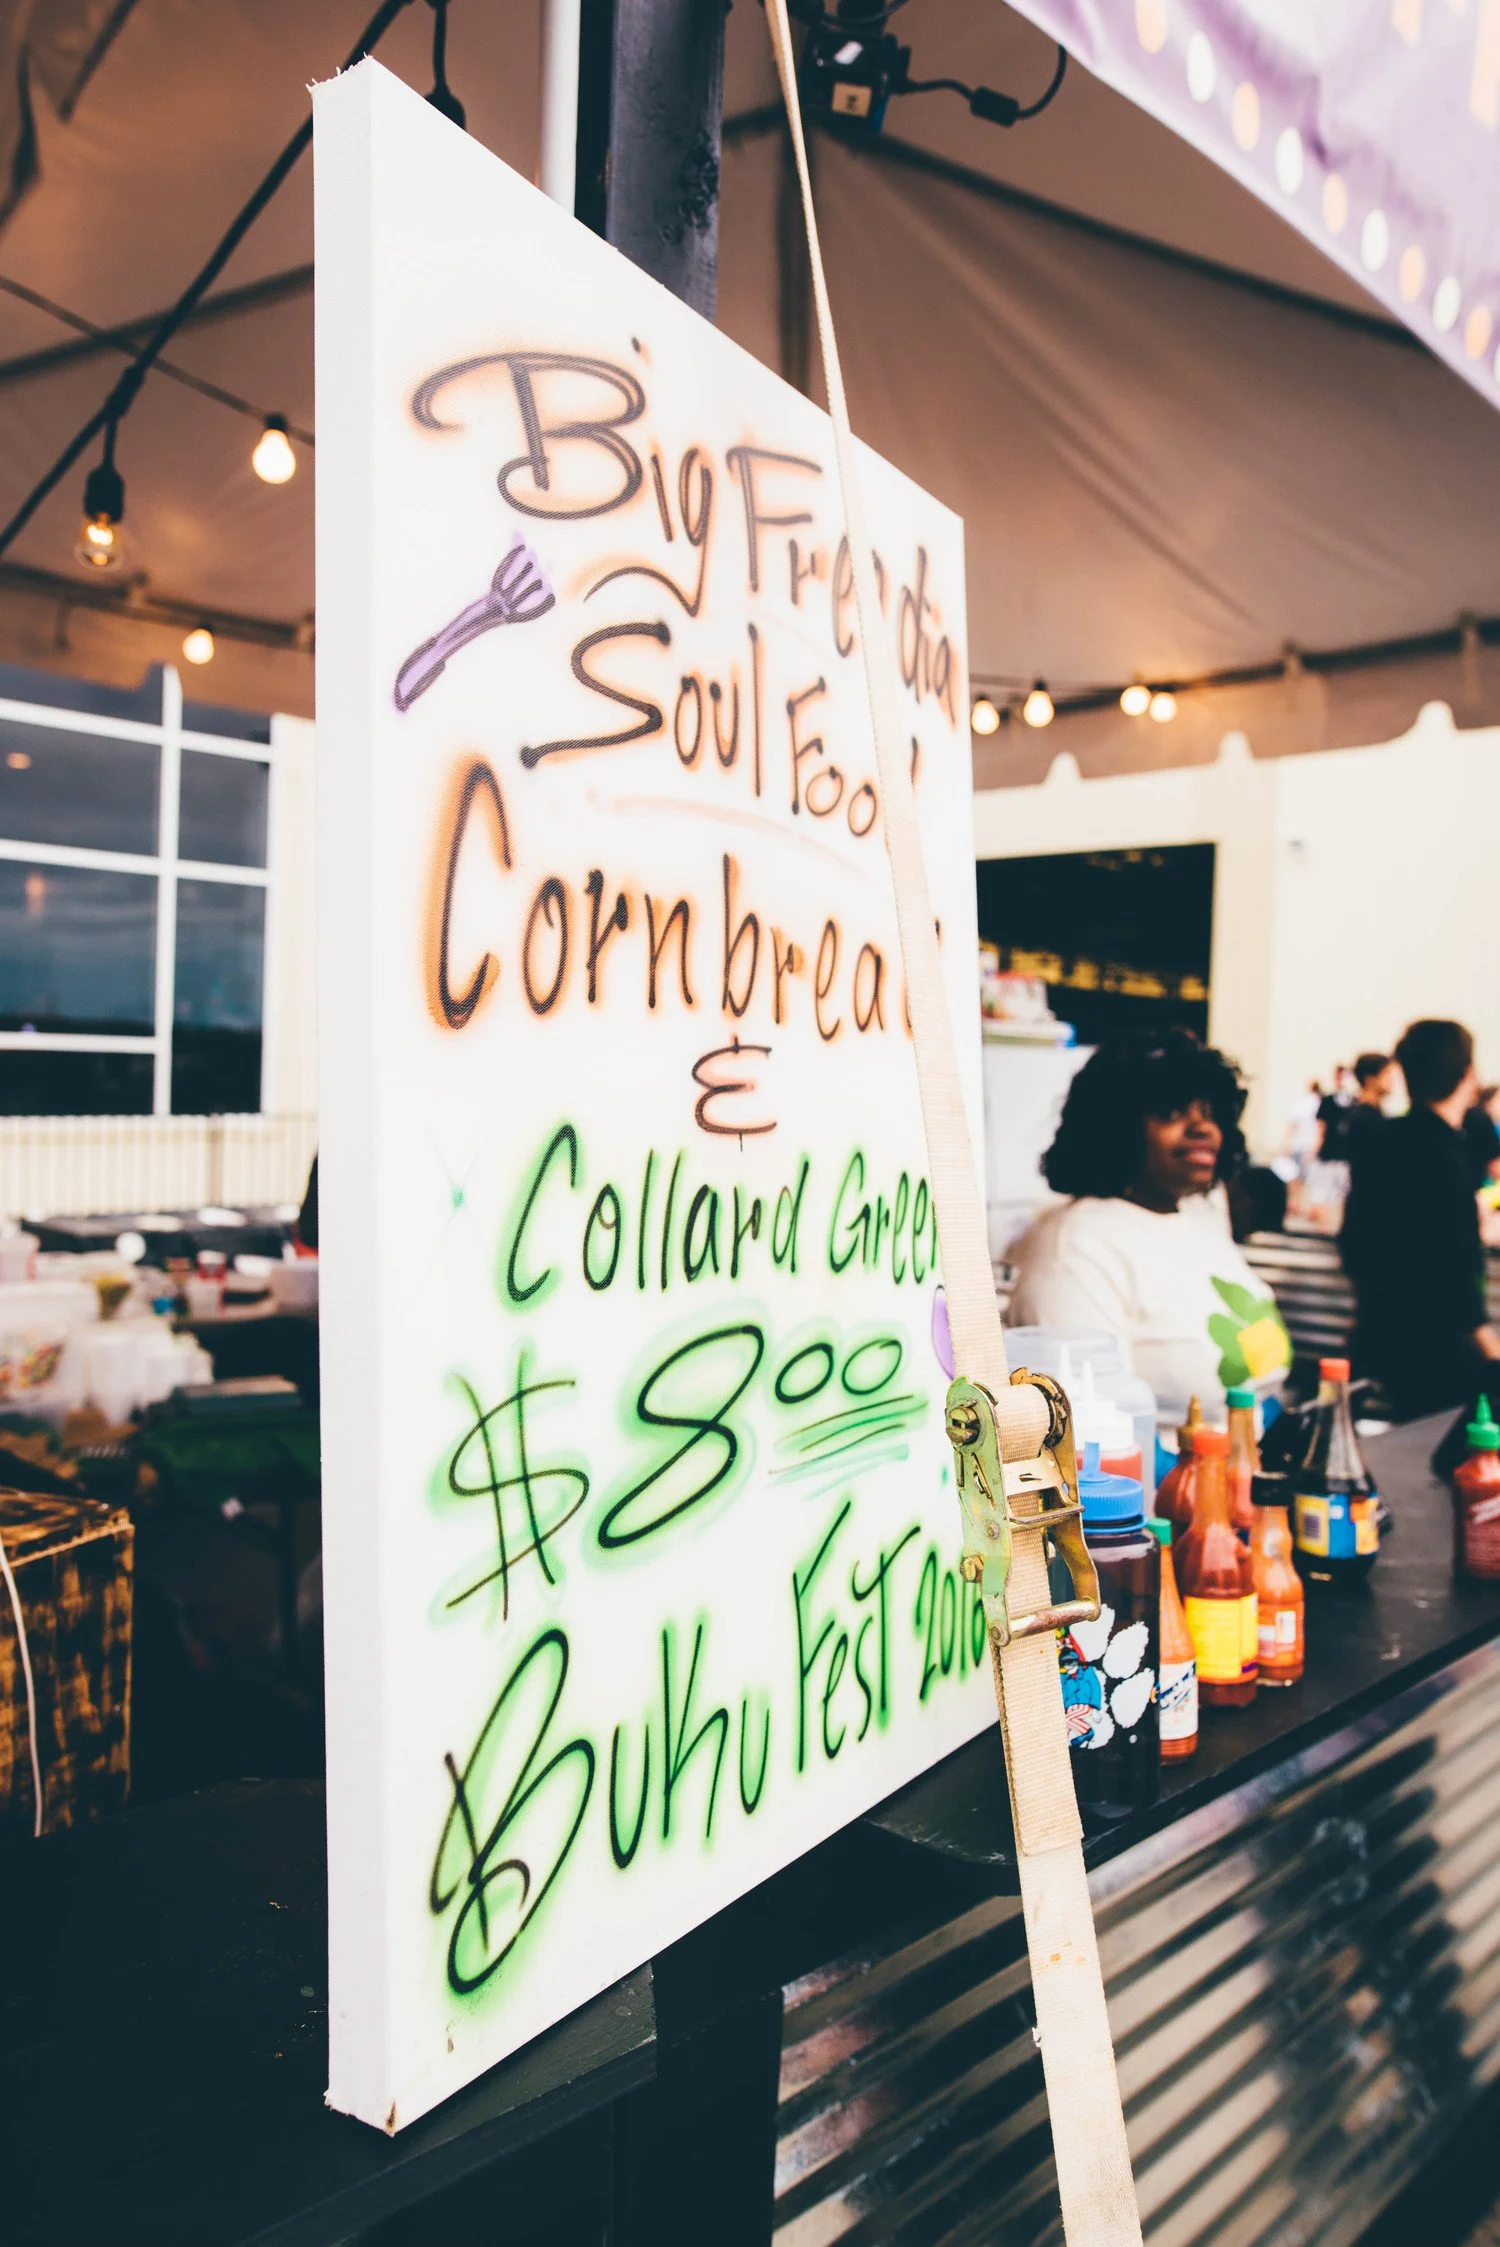 Big Freedia
Soul Food
Cornbread
&
Collard Green
$8.00
Buku Fest 2018